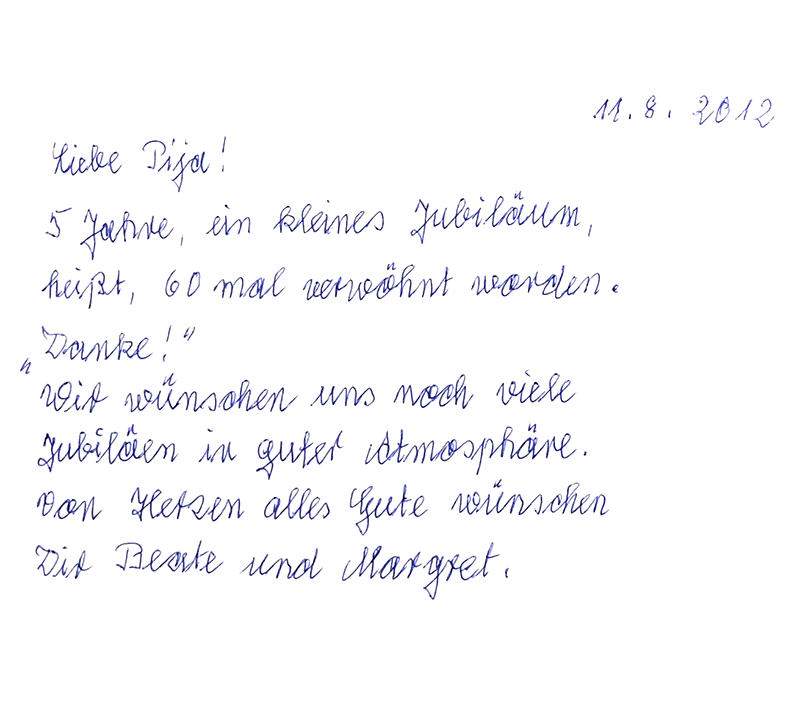 11.8.2012
Liebe Pija!
5 Jahre, ein kleines Jubiläum,
heißt, 60 mal verwöhnt worden.
„Danke!“
Wir wünschen uns noch viele
Jubiläen in guter Atmosphäre.
Von Herzen alles Gute wünschen
Dir Beate und Margret.